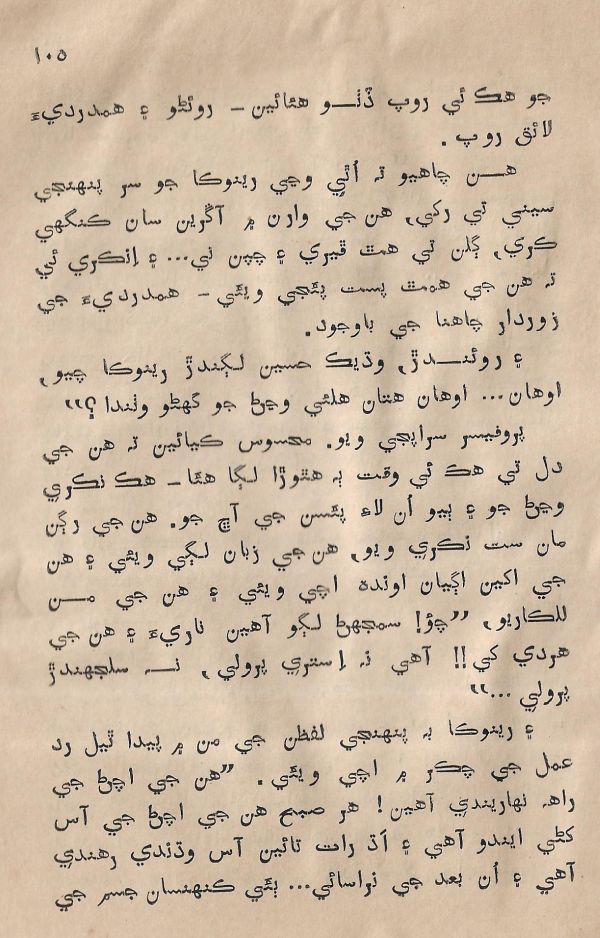 ۱۰۵
جو هڪ ئي روپ ڏٺو هئائين ـ روئڻو ۽ همدرديءَ
لائق روپ.
هن چاهيو تہ اُٿي وڃي رينوڪا جو سر پنهنجي
سيني تي رکي، هن جي وارن ۾ آڱرين سان ڪنگهي
ڪري، ڳلن تي هٿ ڦيري ۽ چپن تي... ۽ اِنڪري ئي
تہ هن جي همٿ پست پئجي ويئي ـ همدرديءَ جي
زوردار چاهنا جي باوجود.
۽ روئندڙ، وڌيڪ حسين لڳندڙ رينوڪا چيو،
اوهان... اوهان هتان هلڻي وڃڻ جو گهڻو وٺندا؟"
پروفيسر سراپجي ويو. محسوس ڪيائين تہ هن جي
دل تي هڪ ئي وقت ٻہ هٿوڙا لڳا هئا ـ هڪ نڪري
وڃڻ جو ۽ ٻيو اُن لاءِ پئسن جي آڇ جو. هن جي رڳن
مان ست نڪري ويو، هن جي زبان لڳي ويئي ۽ هن
جي اکين اڳيان اونده اچي ويئي ۽ هن جي مــن
للڪاريو، "چؤ! سمجهڻ لڳو آهين ناريءَ ۽ هن جي
هردي کي!! آهي نہ اِستري پرولي، نــہ سلجهندڙ
پرولي..."
۽ رينوڪا بہ پنهنجي لفظن جي من ۾ پيدا ٿيل رد
عمل جي چڪر ۾ اچي ويئي. "هن جي اچڻ جي
راهہ نهاريندي آهين! هر صبح هن جي اچڻ جي آس
کڻي ايندو آهي ۽ اَڌ رات تائين آس وڌندي رهندي
آهي ۽ اُن بعد جي نراسائي... ٻئي ڪنهنسان جسم جي